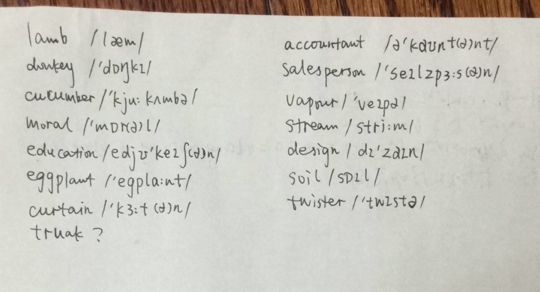 lamb /læm/
donkey /'dɒŋkɪ/
cucumber /'kju:kʌmbə/
moral /'mɒr(ə)l/
education /edjʊ'keɪʃ(ə)n/
eggplant /'egpla:nt/
curtain /'kɜ:t(ə)n/
truak ?
accountant /ə'kaʊnt(ə)nt/
salesperson /'seɪlzpɜ:s(ə)n/
vapour /'veɪpə/
stream /stri:m/
design /dɪ'zaɪn/
soil /sɒɪl/
twister /'twɪstə/